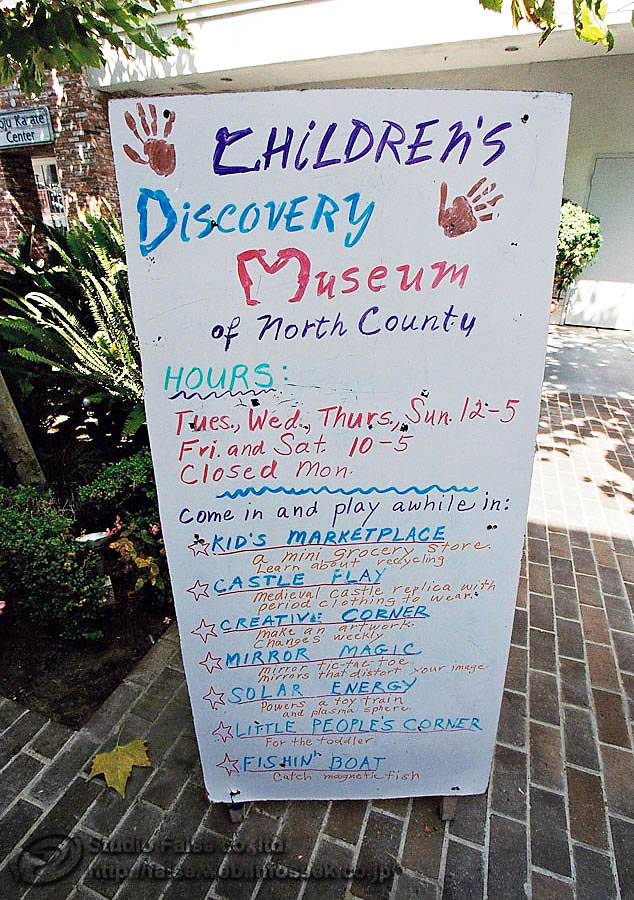 oju Karate
Center
CHILDREN's
DISCOVERY
MUSEUM
of North County
HOURS:
Tues., Wed., Thurs., Sun. 12-5
Fri. and Sat. 10-5
Closed Mon.
Come in and play awhile in:
KID'S MARKETPLACE
a mini grocery store.
Learn about recycling
CASTLE PLAY
medieval castle replica with
period clothing to wear.
CREATIVE CORNER
make an artwork.
Changes weekly
MIRROR MAGIC
mirror tic-tac-toe
mirrors that distort your image
SOLAR ENERGY
Powers a toy train
and plasma sphere
LITTLE PEOPLE'S CORNER
For the toddler
FISHIN' BOAT
Catch magnetic fish
Studio False co.,ltd.
http://falsa.web.infoseek.co.jp